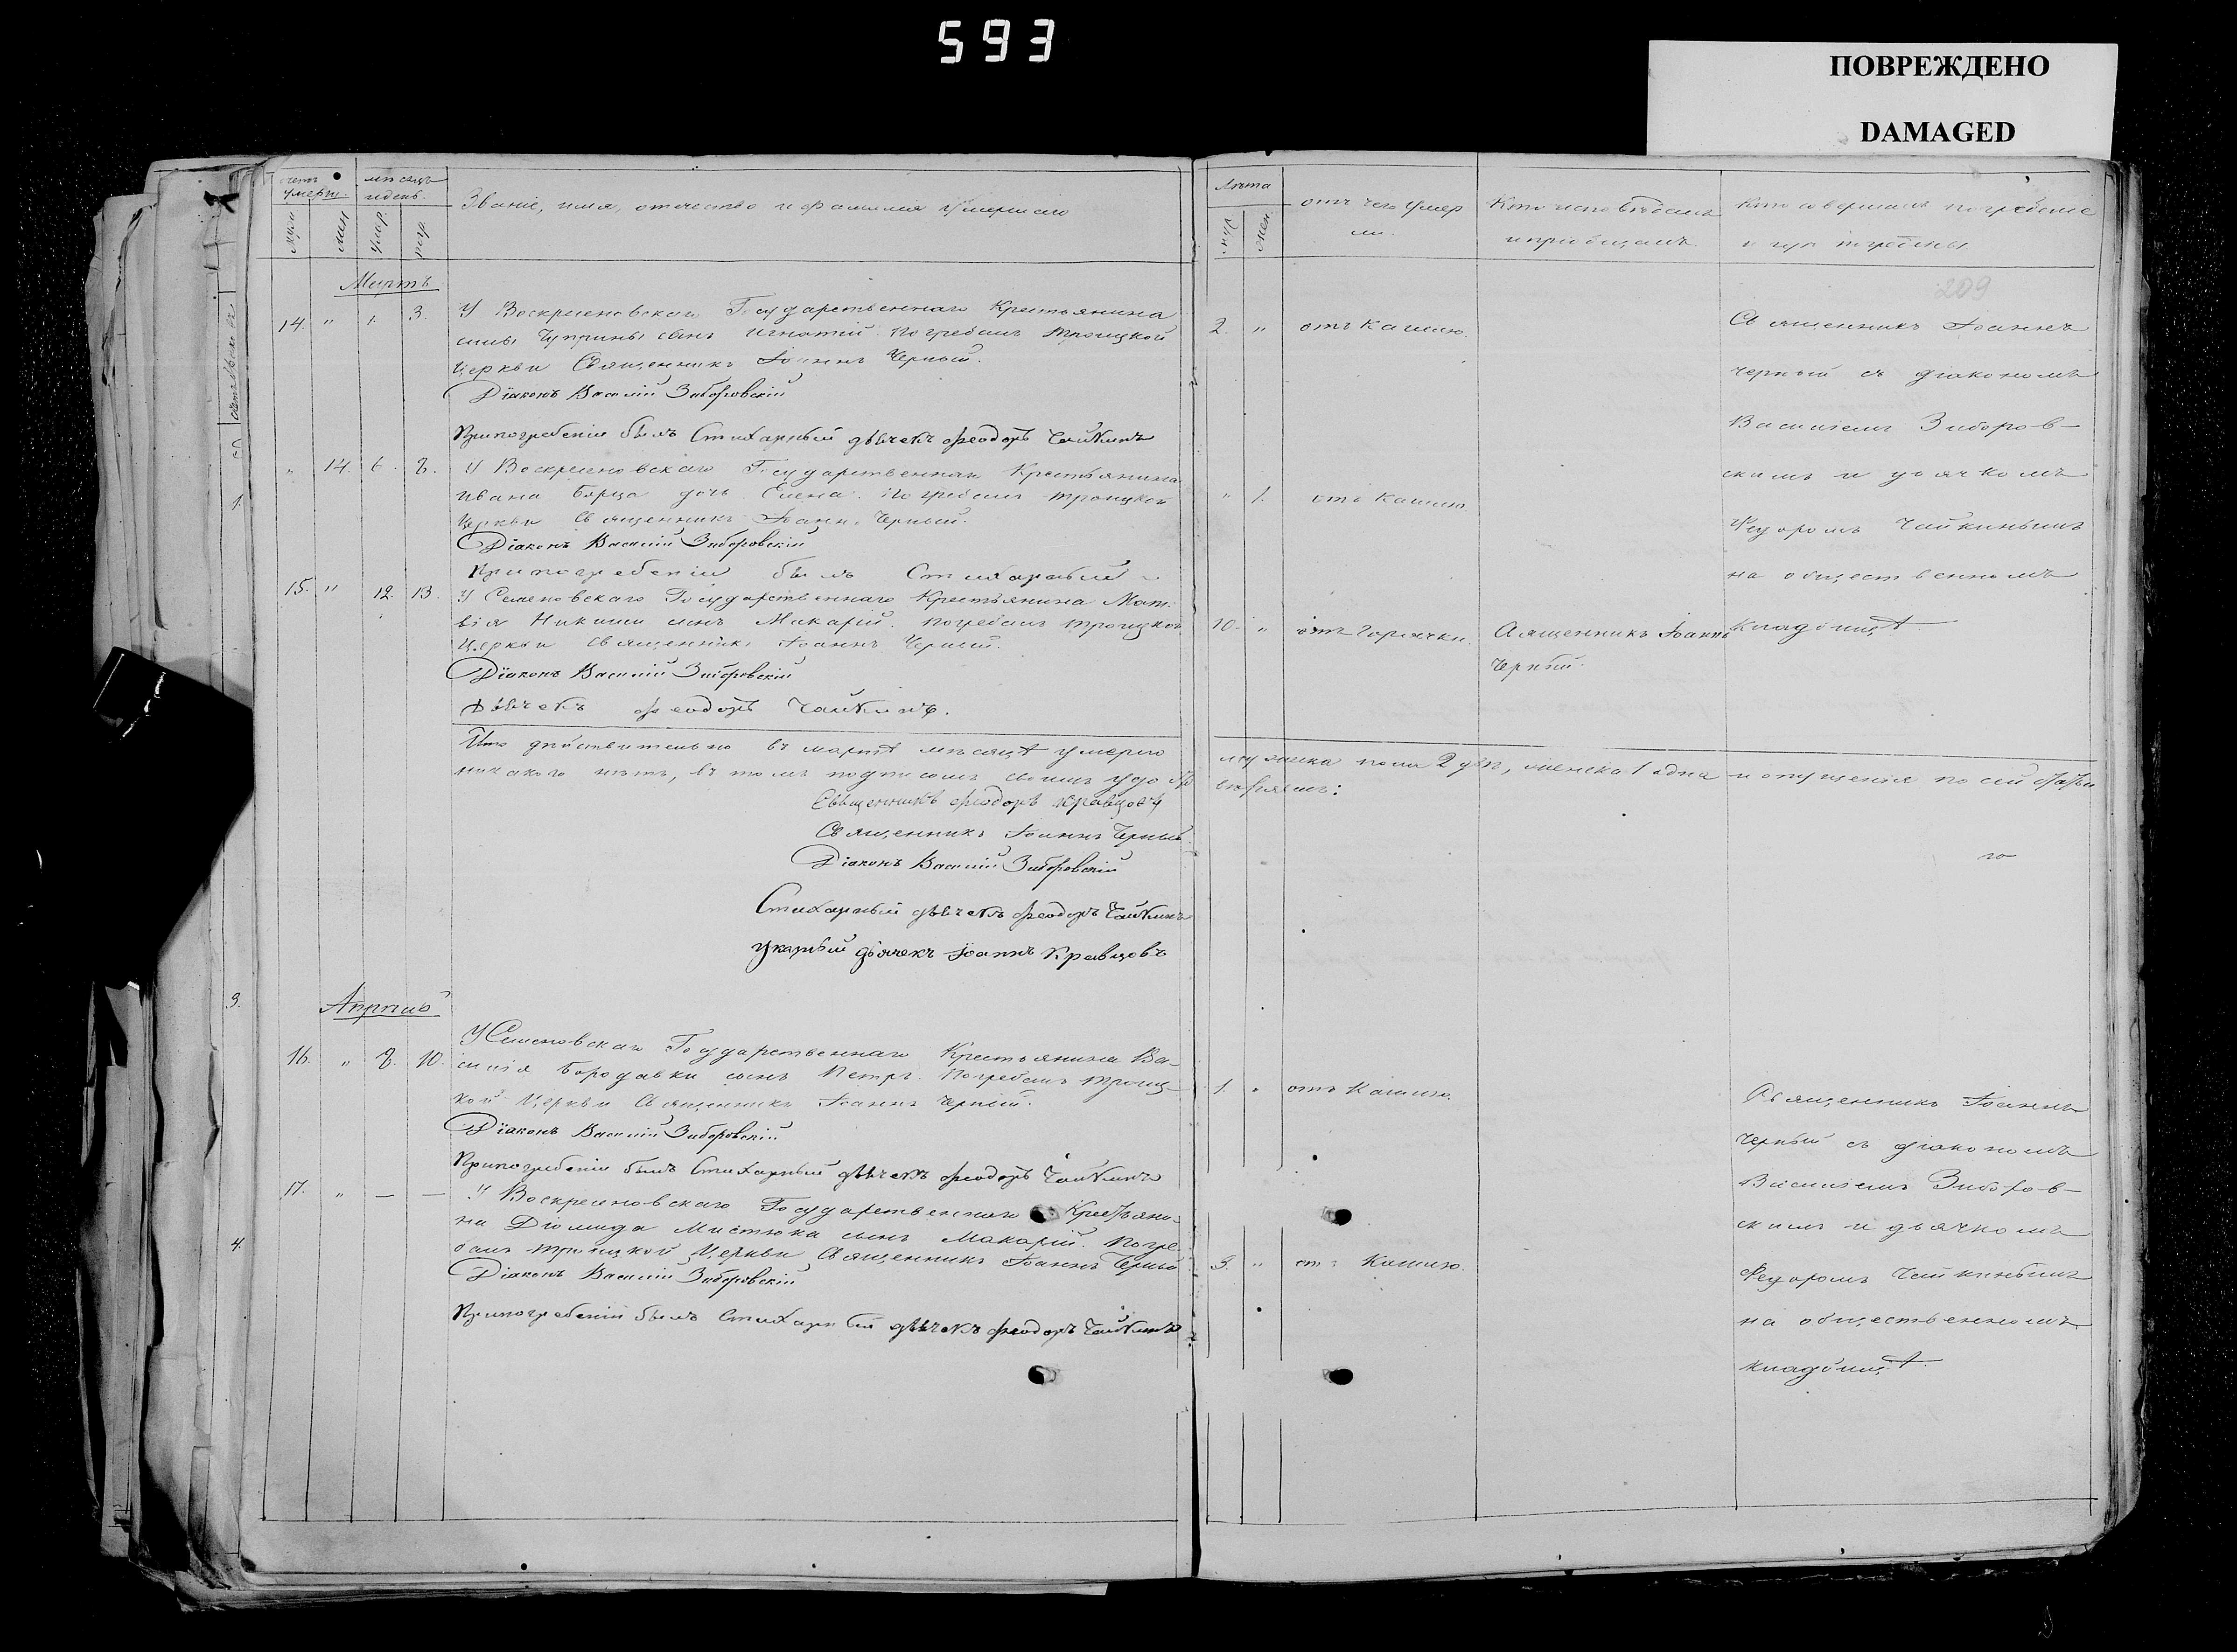 593
ПОВРЕЖДЕНО
DAMAGED
умерш.
мѣсяцъ
и день.
Званіе, имя, отечество и фамилія умершаго
муж
жен
умер.
погр.
Лѣта
муж.
жен.
отъ чего умер
ли.
Кто исповѣдалъ
и пріобщалъ
Кто совершалъ погребеніе
и гдѣ погребены
209
Мартъ
14. " 1. 3. У Воскресеновскаго Государственнаго Крестьянина
Чуприны сынъ Игнатій. Погребалъ Троицкой
Церкви Священникъ Іоаннъ Черный.
Діаконъ Василій Зиборовскій
При погребеніи былъ Стихарный дьячекъ Феодоръ Чайкинъ
2. " отъ кашлю.
" 14. 6. 8. У Воскресеновскаго Государственнаго Крестьянина
Ивана дочь Елена. Погребалъ Троицкой
Церкви Священникъ Іоаннъ Черный.
Діаконъ Василій Зиборовскій
При погребеніи былъ Стихарный
" 1. отъ кашлю.
15. " 12. 13. У Семеновскаго Государственнаго Крестьянина Мат-
вія сынъ Макарій. Погребалъ Троицкой
Церкви Священникъ Іоаннъ Черный.
Діаконъ Василій Зиборовскій
Дьячекъ Феодоръ Чайкинъ.
10. " отъ горячки.
Священникъ Іоаннъ
Черный.
Священникъ Іоаннъ
Черный съ діакономъ
Василіемъ Зиборов-
скимъ и дьячкомъ
Федоромъ Чайкинымъ
на общественномъ
кладбищѣ
Что дѣйствительно въ мартѣ мѣсяцѣ умерло мужска пола 2 два, женска 1 одна и опущенія по сей статьи
никакого нѣтъ, въ томъ подписомъ своимъ удосто
вѣряемъ:
Священникъ Феодоръ Кравцовъ
Священникъ Іоаннъ Черный
Діаконъ Василій Зиборовскій
Стихарный дьячекъ Феодоръ Чайкинъ
Указный дьячекъ Іоаннъ Кравцовъ
Апрѣль
16. " 8. 10. У Семеновскаго Государственнаго Крестьянина Ва-
силія Бородавки сынъ Петръ. Погребалъ Троиц-
кой Церкви Священникъ Іоаннъ Черный.
Діаконъ Василій Зиборовскій
При погребеніи былъ Стихарный дьячекъ Феодоръ Чайкинъ
1. " отъ кашлю.
17. " — — У Воскресеновскаго Государственнаго Крестьяни-
на Діомида Мистюка сынъ Макарій. Погре-
балъ Троицкой Церкви Священникъ Іоаннъ Черный
Діаконъ Василій Зиборовскій
При погребеніи былъ Стихарный дьячекъ Феодоръ Чайкинъ
3. " отъ кашлю.
Священникъ Іоаннъ
Черный съ діакономъ
Василіемъ Зиборов-
скимъ и дьячкомъ
Федоромъ Чайкинымъ
на общественномъ
кладбищѣ.
1.
3.
4.